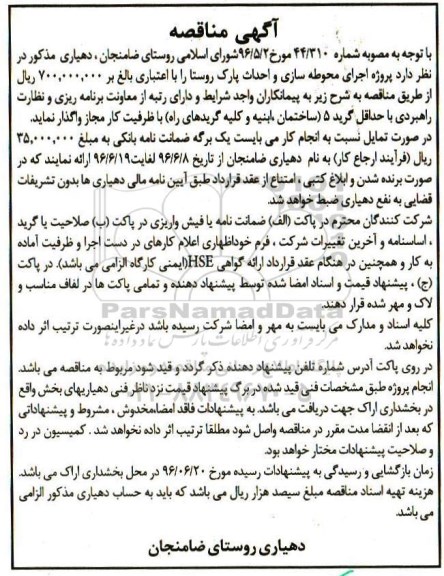 آگهی مناقصه
با توجه به مصوبه شماره ۴۴/۳۱۰ مورخ۹۶/۵/۲شورای اسلامی روستای ضامنجان ، دهیاری مذکور در
نظر دارد پروژه اجرای محوطه سازی و احداث پارک روستا را با اعتباری بالغ بر ۷۰۰,۰۰۰,۰۰۰ ریال
از طریق مناقصه به شرح زیر به پیمانکاران واجد شرایط و دارای رتبه از معاونت برنامه ریزی و نظارت
راهبردی با حداقل گرید ۵ (ساختمان ،ابنیه و کلیه گریدهای راه) با ظرفیت کار مجاز واگذار نماید.
در صورت تمایل نسبت به انجام کار می بایست یک برگه ضمانت نامه بانکی به مبلغ ۳۵,۰۰۰,۰۰۰
ریال (فرآیند ارجاع کار) به نام دهیاری ضامنجان از تاریخ ۹۶/۶/۸ لغایت۹۶/۶/۱۹ ارائه نمایند که در
صورت برنده شدن و ابلاغ کتبی ، امتناع از عقد قرارداد طبق آیین نامه مالی دهیاری ها بدون تشریفات
قضایی به نفع دهیاری ضبط خواهد شد.
شرکت کنندگان محترم در پاکت (الف) ضمانت نامه یا فیش واریزی در پاکت (ب) صلاحیت یا گرید
، اساسنامه و آخرین تغییرات شرکت ، فرم خوداظهاری اعلام کارهای در دست اجرا و ظرفیت آماده
به کار و همچنین در هنگام عقد قرارداد ارائه گواهی HSE(ایمنی کارگاه الزامی می باشد). در پاکت
(ج) ، پیشنهاد قیمت و اسناد امضا شده توسط پیشنهاد دهنده و تمامی پاکت ها در لفاف مناسب و
لاک و مهر شده قرار دهند.
کلیه اسناد و مدارک می بایست به مهر و امضا شرکت رسیده باشد درغیراینصورت ترتیب اثر داده
نخواهد شد.
در روی پاکت آدرس شماره تلفن پیشنهاد دهنده ذکر گردد و قید شود مربوط به مناقصه می باشد.
انجام پروژه طبق مشخصات فنی قید شده در برگ پیشنهاد قیمت نزد ناظر فنی دهیاریهای بخش واقع
در بخشداری اراک جهت دریافت می باشد. به پیشنهادات فاقد امضا،مخدوش ، مشروط و پیشنهاداتی
که بعد از انقضا مدت مقرر در مناقصه واصل شود مطلقا ترتیب اثر داده نخواهد شد . کمیسیون در رد
و صلاحیت پیشنهادات مختار خواهد بود.
زمان بازگشایی و رسیدگی به پیشنهادات رسیده مورخ ۹۶/۰۶/۲۰ در محل بخشداری اراک می باشد.
هزینه تهیه اسناد مناقصه مبلغ سیصد هزار ریال می باشد که باید به حساب دهیاری مذکور الزامی
می باشد.
دهیاری روستای ضامنجان
ParsNamadData